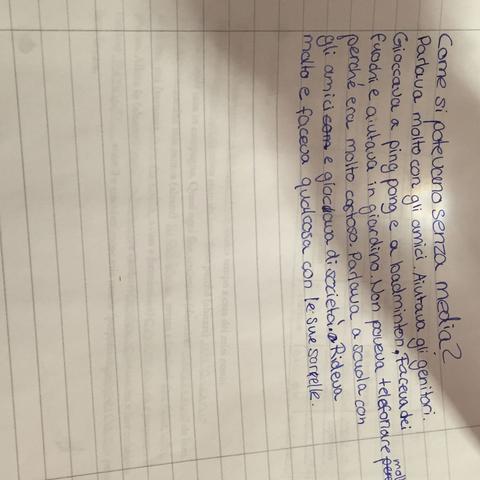 Come si potevano senza media?
Parlava molto con gli amici. Aiutava gli genitori.
Gioccava a ping pong e a badminton. Faceva dei
fuochi e aiutava in giardino. Non poveva telefonare molt
perché era molto costoso. Parlava a scuola con
gli amici e giocava di società. Rideva
molto e faceva qualcosa con le sue sorrelle.